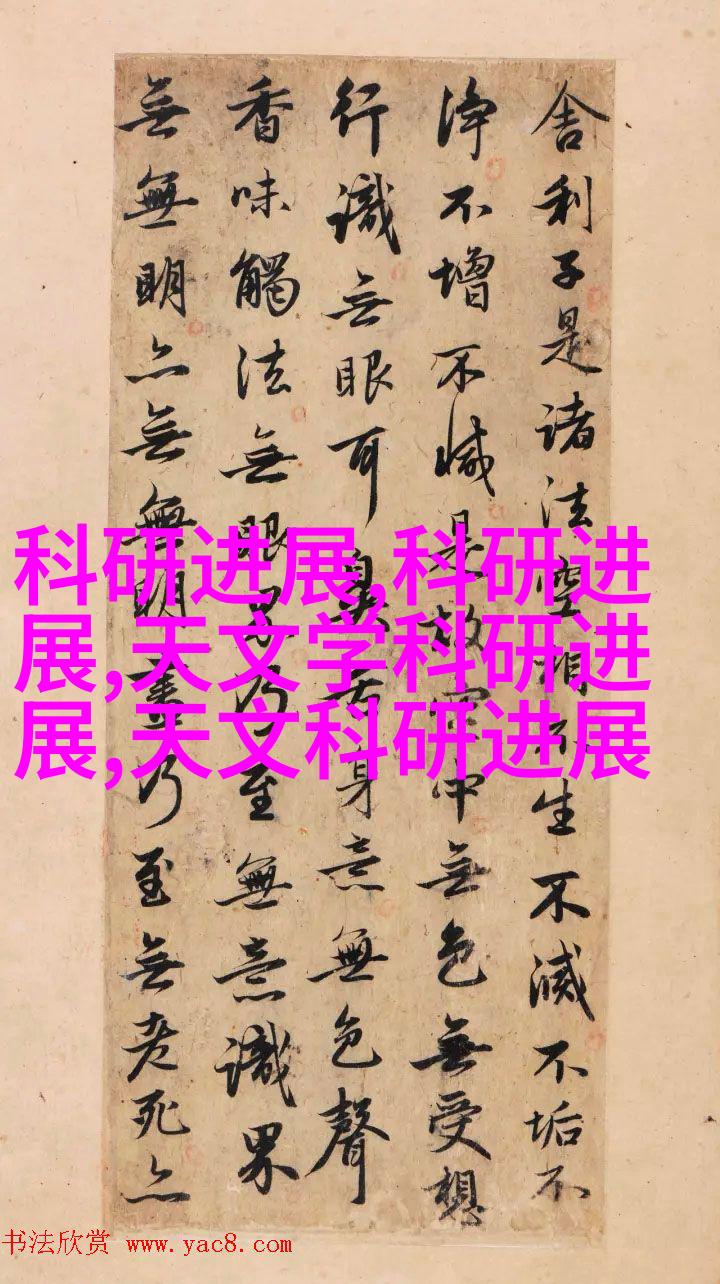 舍利子是諸法空相不生不滅不垢不
淨不增不減是故空中無色無受想
行識無眼耳鼻舌身意無色聲
香味觸法無眼界乃至無意識界
無無明亦無無明盡乃至無老死亦
科研进展,科研进
展,天文学科研进
展,天文科研进展
书法欣赏 www.yac8.com